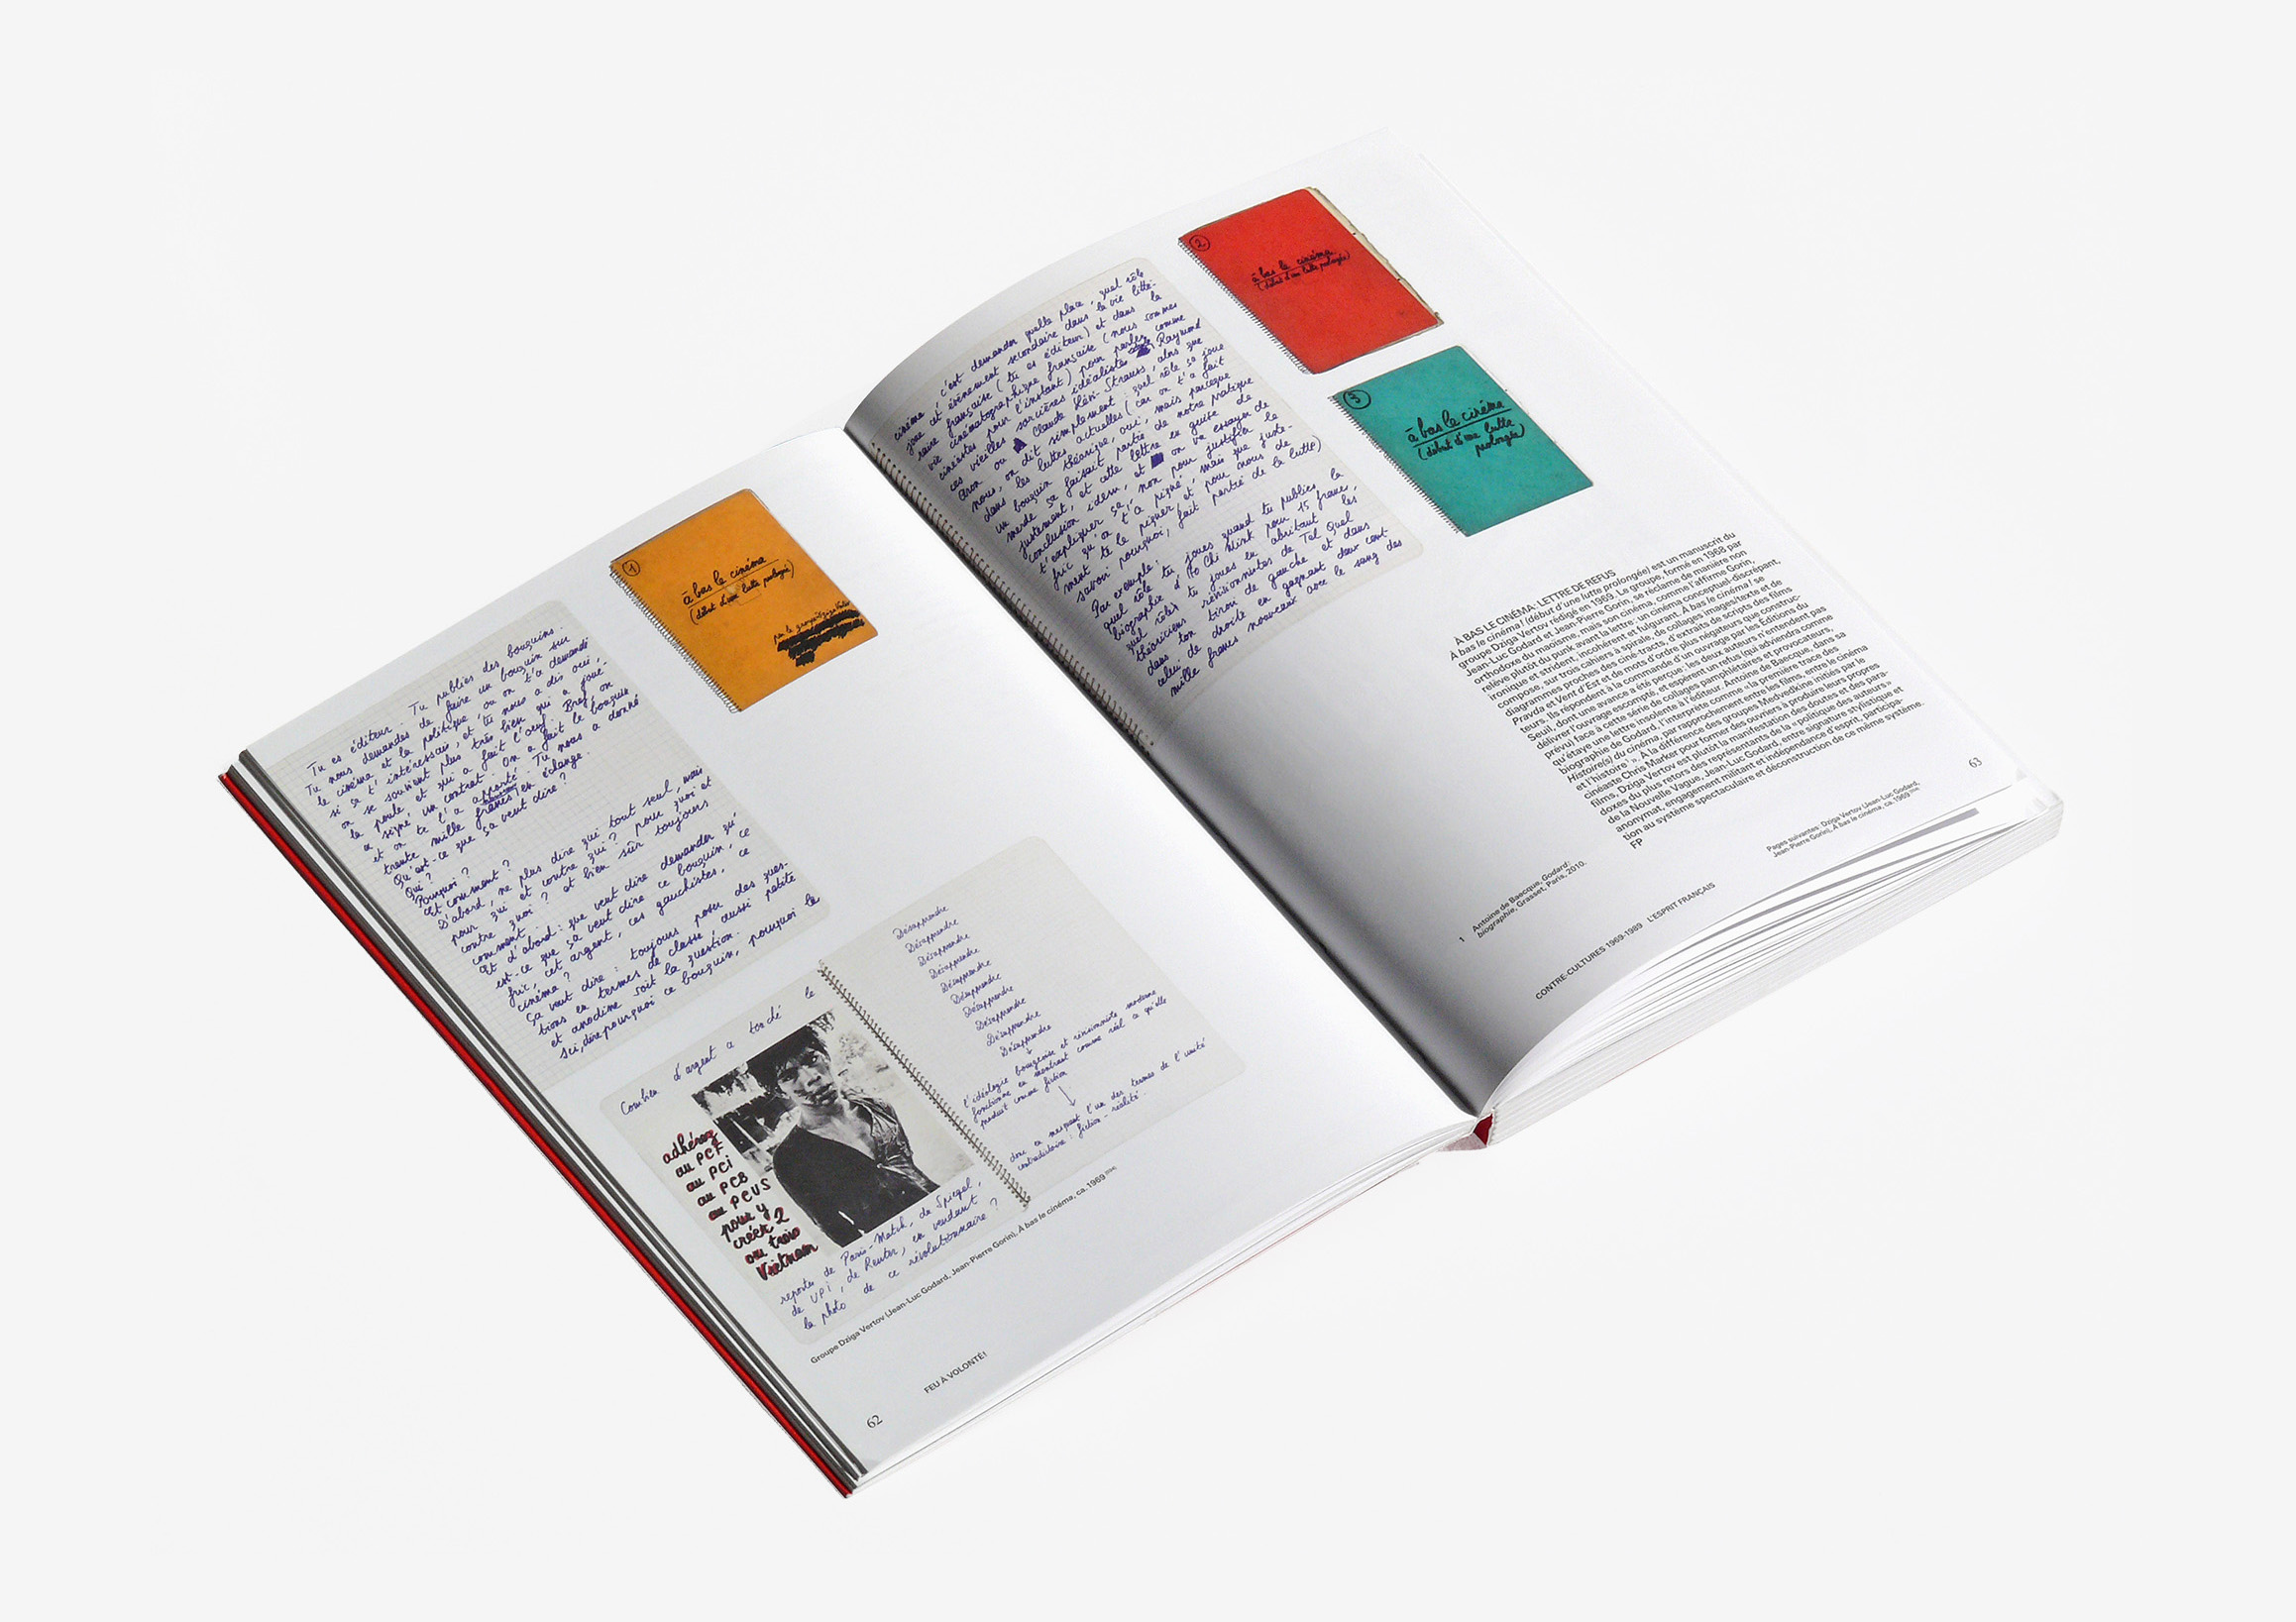 Tu es éditeur. Tu publies des bouquins.
Tu nous demandes de faire un bouquin sur
le cinéma et la politique où on t'a demandé
si sa t'intéressais, et tu nous a dis oui,
on se souvient plus très bien qui a joué
la poule et qui a fait l'oeuf. Bref on
a signé un contrat. On a fait le bouquin
et on te l'a apporté. Tu nous a donné
trente mille francs en échange.
Qu'est-ce que sa veut dire?
Qui?
Pourquoi?
Et comment?
D'abord, ne plus dire qui tout seul, mais
pour qui et contre qui? pour quoi et
contre quoi? et bien sûr toujours
comment.
Et d'abord: que veut dire demander qu'
est-ce que sa veut dire ce bouquin, ce
fric, cet argent, ces gauchistes, ce
cinéma?
Sa veut dire: toujours poser des ques-
tions en termes de classe aussi petite
et anodine soit la question.
Ici, dire pourquoi ce bouquin, pourquoi le
1
à bas le cinéma
(début d'une lutte prolongée)
par le groupe Dziga Vertov
Combien d'argent a touché le
adhérez
au PCF
au PCI
au PCB
au PCUS
pour y
créer 2
ou trois
Vietnam
reporter de Paris-Match, de Spiegel,
de UPI, de Reuter, en vendant
la photo de ce révolutionnaire?
Désapprendre
Désapprendre
Désapprendre
Désapprendre
Désapprendre
Désapprendre
Désapprendre
Désapprendre
Désapprendre
Désapprendre
l'idéologie bourgeoise et révisionniste moderne
fonctionne en montrant comme réel ce qu'elle
produit comme fiction
donc en marquant l'un des termes de l'unité
contradictoire: fiction-réalité.
Groupe Dziga Vertov (Jean-Luc Godard, Jean-Pierre Gorin), À bas le cinéma, ca. 1969
FEU À VOLONTÉ!
62
cinéma c'est demander quelle place, quel rôle
joue cet événement secondaire dans la vie litté-
raire française (tu es éditeur) et dans la
vie cinématographique française (nous sommes
cinéastes pour l'instant) pour parler comme
ces vieilles sorcières idéalistes Raymond
Aron ou Claude Lévi-Strauss, alors que
nous, on dit simplement: quel rôle sa joue
dans les luttes actuelles (car on t'a fait
un bouquin théorique, oui, mais parceque
merde sa faisait partie de notre pratique
justement, et cette lettre en guise de
conclusion idem, et on va essayer de
t'expliquer sa, non pour justifier le
fric qu'on t'a piqué, mais que juste-
ment te le piquer et pour nous de
savoir pourquoi, fait partie de la lutte)
Par exemple:
quel rôle tu joues quand tu publies la
biographie d'Ho Chi Minh pour 15 francs,
quel rôles tu joues en abritant les
théoriciens révisionnistes de Tel Quel
dans ton tiroir de gauche et dans
celui de droite en gagnant deux cent
mille francs nouveaux avec le sang des
2
à bas le cinéma
(début d'une lutte prolongée)
3
à bas le cinéma
(début d'une lutte
prolongée)
À BAS LE CINÉMA: LETTRE DE REFUS
À bas le cinéma! (début d'une lutte prolongée) est un manuscrit du
groupe Dziga Vertov rédigé en 1969. Le groupe, formé en 1968 par
Jean-Luc Godard et Jean-Pierre Gorin, se réclame de manière non
orthodoxe du maoïsme, mais son cinéma, comme l'affirme Gorin,
relève plutôt du punk avant la lettre: un cinéma conceptuel-discrépant,
ironique et strident, incohérent et fulgurant. À bas le cinéma! se
compose, sur trois cahiers à spirale, de collages images/texte et de
diagrammes proches des ciné-tracts, d'extraits de scripts des films
Pravda et Vent d'Est et de mots d'ordre plus négateurs que construc-
teurs. Ils répondent à la commande d'un ouvrage par les Éditions du
Seuil, dont une avance a été perçue: les deux auteurs n'entendent pas
délivrer l'ouvrage escompté, et espèrent un refus (qui adviendra comme
prévu) face à cette série de collages pamphlétaires et provocateurs,
qu'étaye une lettre insolente à l'éditeur. Antoine de Baecque, dans sa
biographie de Godard, l'interprète comme «la première trace des
Histoire(s) du cinéma, par rapprochement entre les films, entre le cinéma
et l'histoire¹». À la différence des groupes Medvedkine initiés par le
cinéaste Chris Marker pour former des ouvriers à produire leurs propres
films, Dziga Vertov est plutôt la manifestation des doutes et des para-
doxes du plus retors des représentants de la «politique des auteurs»
de la Nouvelle Vague, Jean-Luc Godard, entre signature stylistique et
anonymat, engagement militant et indépendance d'esprit, participa-
tion au système spectaculaire et déconstruction de ce même système.
FP
1 Antoine de Baecque, Godard:
biographie, Grasset, Paris, 2010.
Pages suivantes: Dziga Vertov (Jean-Luc Godard,
Jean-Pierre Gorin), À bas le cinéma, ca. 1969
CONTRE-CULTURES 1969-1989 L'ESPRIT FRANÇAIS
63